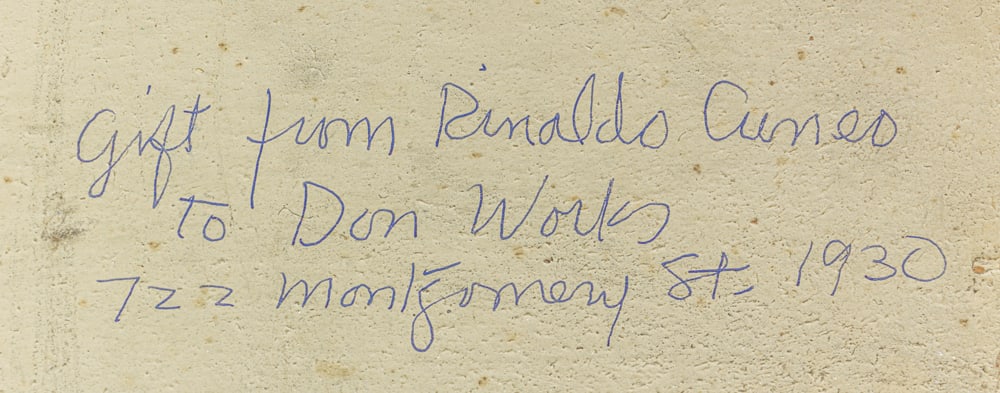 Gift from Rinaldo Cuneo
to Don Works
722 Montgomery St. 1930